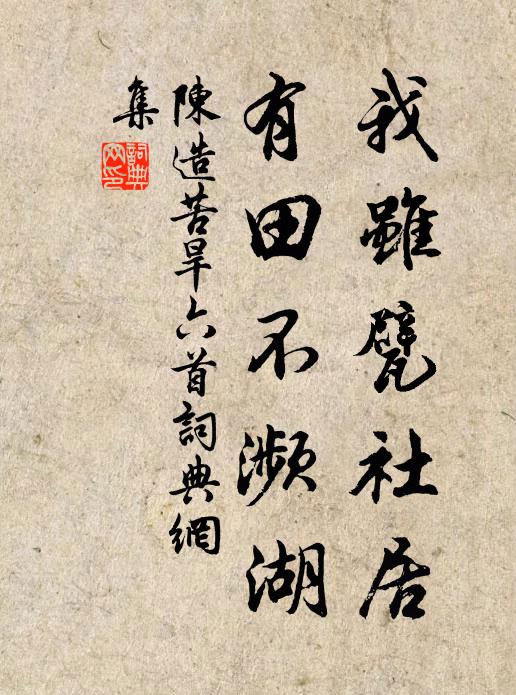 我雖甓社居
有田不瀕湖
陳造苦旱六首詞典網
集
詞典
网印